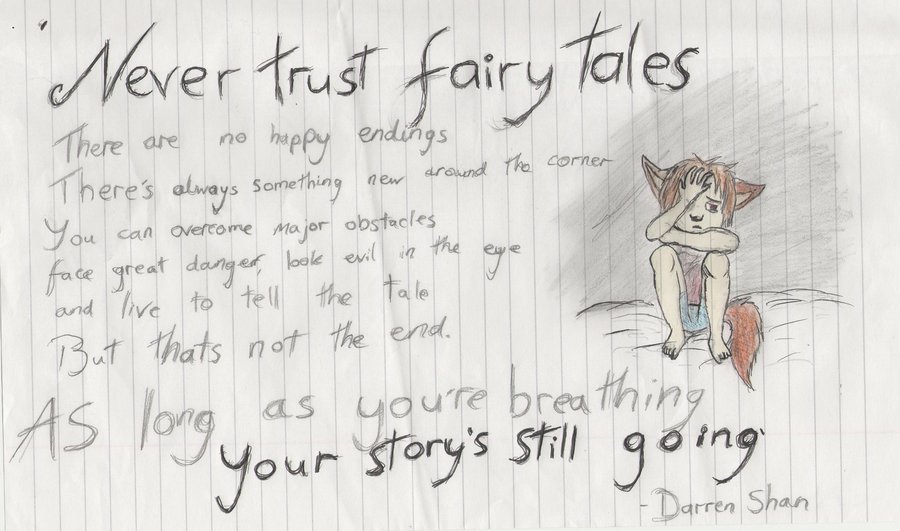 Never trust fairy tales
There are no happy endings
There's always something new around the corner
You can overcome major obstacles
face great danger, look evil in the eye
and live to tell the tale
But thats not the end.
As long as you're breathing
your story's still going
- Darren Shan